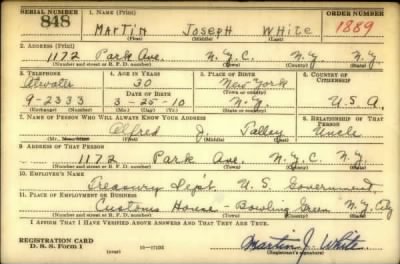 SERIAL NUMBER 1. NAME (Print) ORDER NUMBER
848 MARTIN JOSEPH WHITE 1889
(First) (Middle) (Last)
2. ADDRESS (Print)
1172 Park Ave. N.Y.C. N.Y. N.Y.
(Number and street or R. F. D. number) (Town) (County) (State)
3. TELEPHONE 4. AGE IN YEARS 5. PLACE OF BIRTH 6. COUNTRY OF CITIZENSHIP
Atwater 30 New York
DATE OF BIRTH (Town or county)
9-2333 3-25-10 N.Y. U.S.A.
(Exchange) (Number) (Mo.) (Day) (Yr.) (State or country)
7. NAME OF PERSON WHO WILL ALWAYS KNOW YOUR ADDRESS 8. RELATIONSHIP OF THAT PERSON
Alfred J. Talley Uncle
(Mr., Mrs., Miss) (First) (Middle) (Last)
9. ADDRESS OF THAT PERSON
1172 Park Ave. N.Y.C. N.Y.
(Number and street or R. F. D. number) (Town) (County) (State)
10. EMPLOYER'S NAME
Treasury Dep't. U.S. Government
11. PLACE OF EMPLOYMENT OR BUSINESS
Customs House - Bowling Green N.Y. City
(Number and street or R. F. D. number) (Town) (County) (State)
I AFFIRM THAT I HAVE VERIFIED ABOVE ANSWERS AND THAT THEY ARE TRUE.
REGISTRATION CARD
D. S. S. Form 1 (over) 16-17105 Martin J. White
(Registrant's signature)